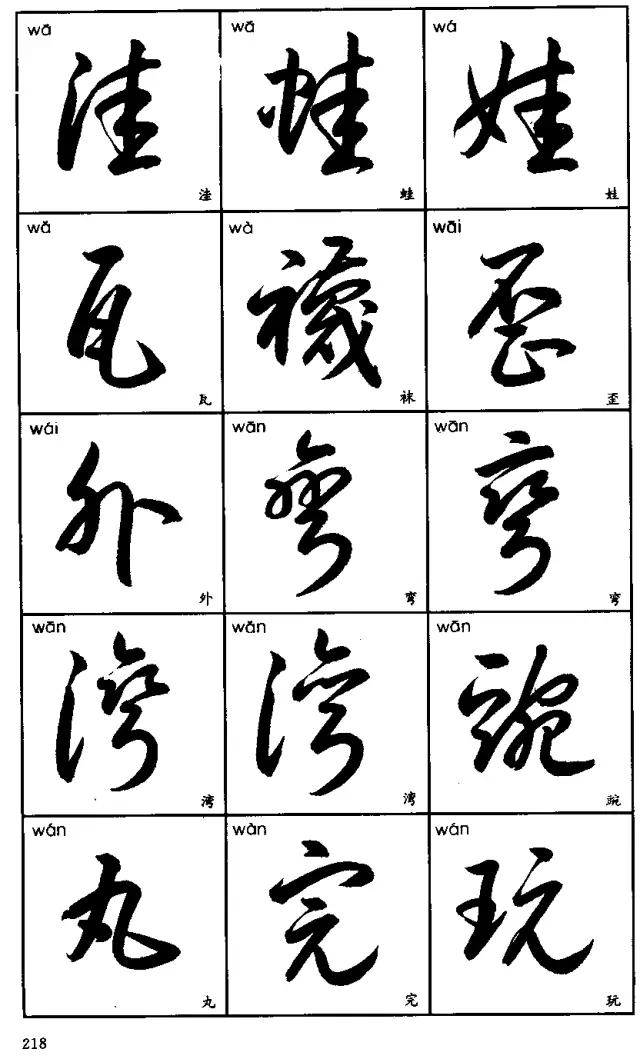 wā wā wá
洼 蛙 娃
洼 蛙 娃
wǎ wà wāi
瓦 襪 歪
瓦 袜 歪
wái wān wān
外 弯 弯
外 弯 弯
wān wān wān
湾 湾 豌
湾 湾 豌
wán wàn wán
丸 完 玩
丸 完 玩
218